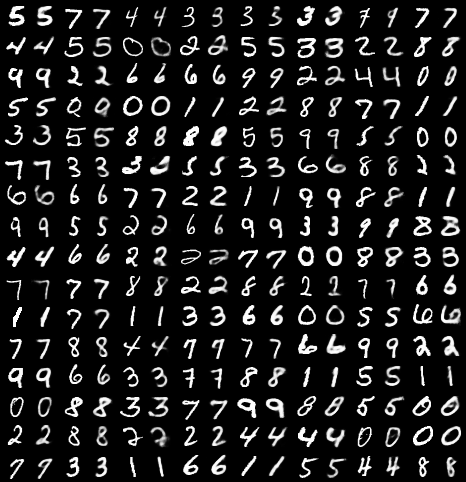 5 5 7 7 4 4 3 3 3 3 3 3 7 9 7 7
4 4 5 5 0 0 2 2 5 5 3 3 2 2 8 8
9 9 2 2 6 6 6 6 9 9 2 2 4 4 0 0
5 5 0 0 0 0 1 1 2 2 8 8 7 7 1 1
3 3 5 5 8 8 8 8 5 5 9 9 5 5 0 0
7 7 3 3 3 3 5 5 3 3 6 6 8 8 2 2
6 6 6 6 7 7 2 2 1 1 9 9 8 8 1 1
9 9 5 5 2 2 6 6 9 9 3 3 9 9 8 8
4 4 6 6 2 2 2 2 7 7 0 0 8 8 3 3
7 7 7 7 8 8 2 2 8 8 2 2 7 7 6 6
1 1 7 7 1 1 3 3 6 6 0 0 5 5 6 6
7 7 8 8 4 4 7 7 7 7 6 6 9 9 2 2
9 9 6 6 3 3 7 7 8 8 1 1 5 5 1 1
0 0 8 8 3 3 7 7 9 9 8 8 5 5 0 0
2 2 8 8 2 2 2 2 4 4 4 4 0 0 0 0
7 9 3 3 1 1 6 6 1 1 5 5 4 4 8 8